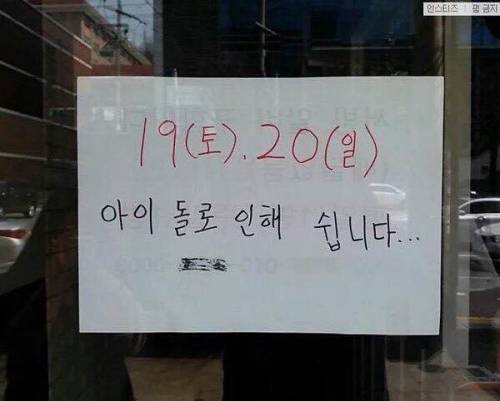 인스티즈 | 펌 금지
19(토).20(일)
아이 돌로 인해 쉽니다...